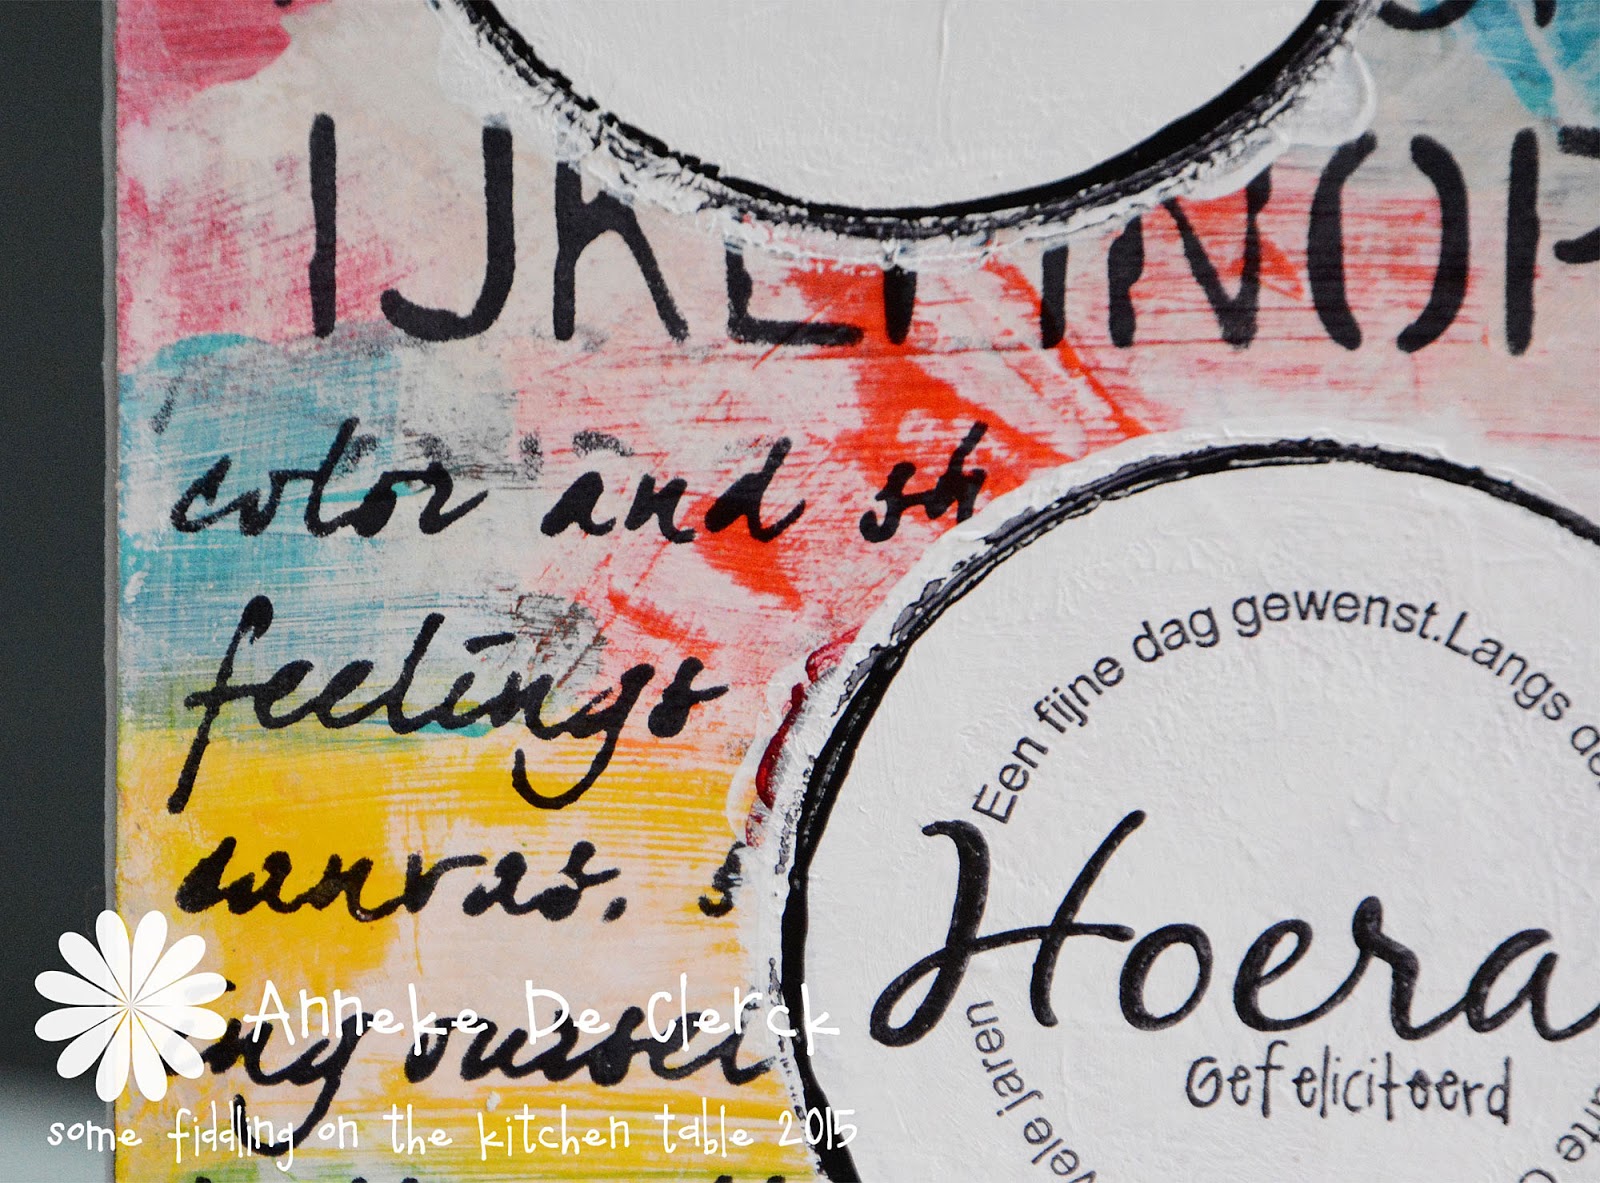 IJKLMNOP
color and sh
feelings
canvas. s
ing oursel
Een fijne dag gewenst. Langs de
Hoera
Gefeliciteerd
vele jaren
Anneke De Clerck
some fiddling on the kitchen table 2015